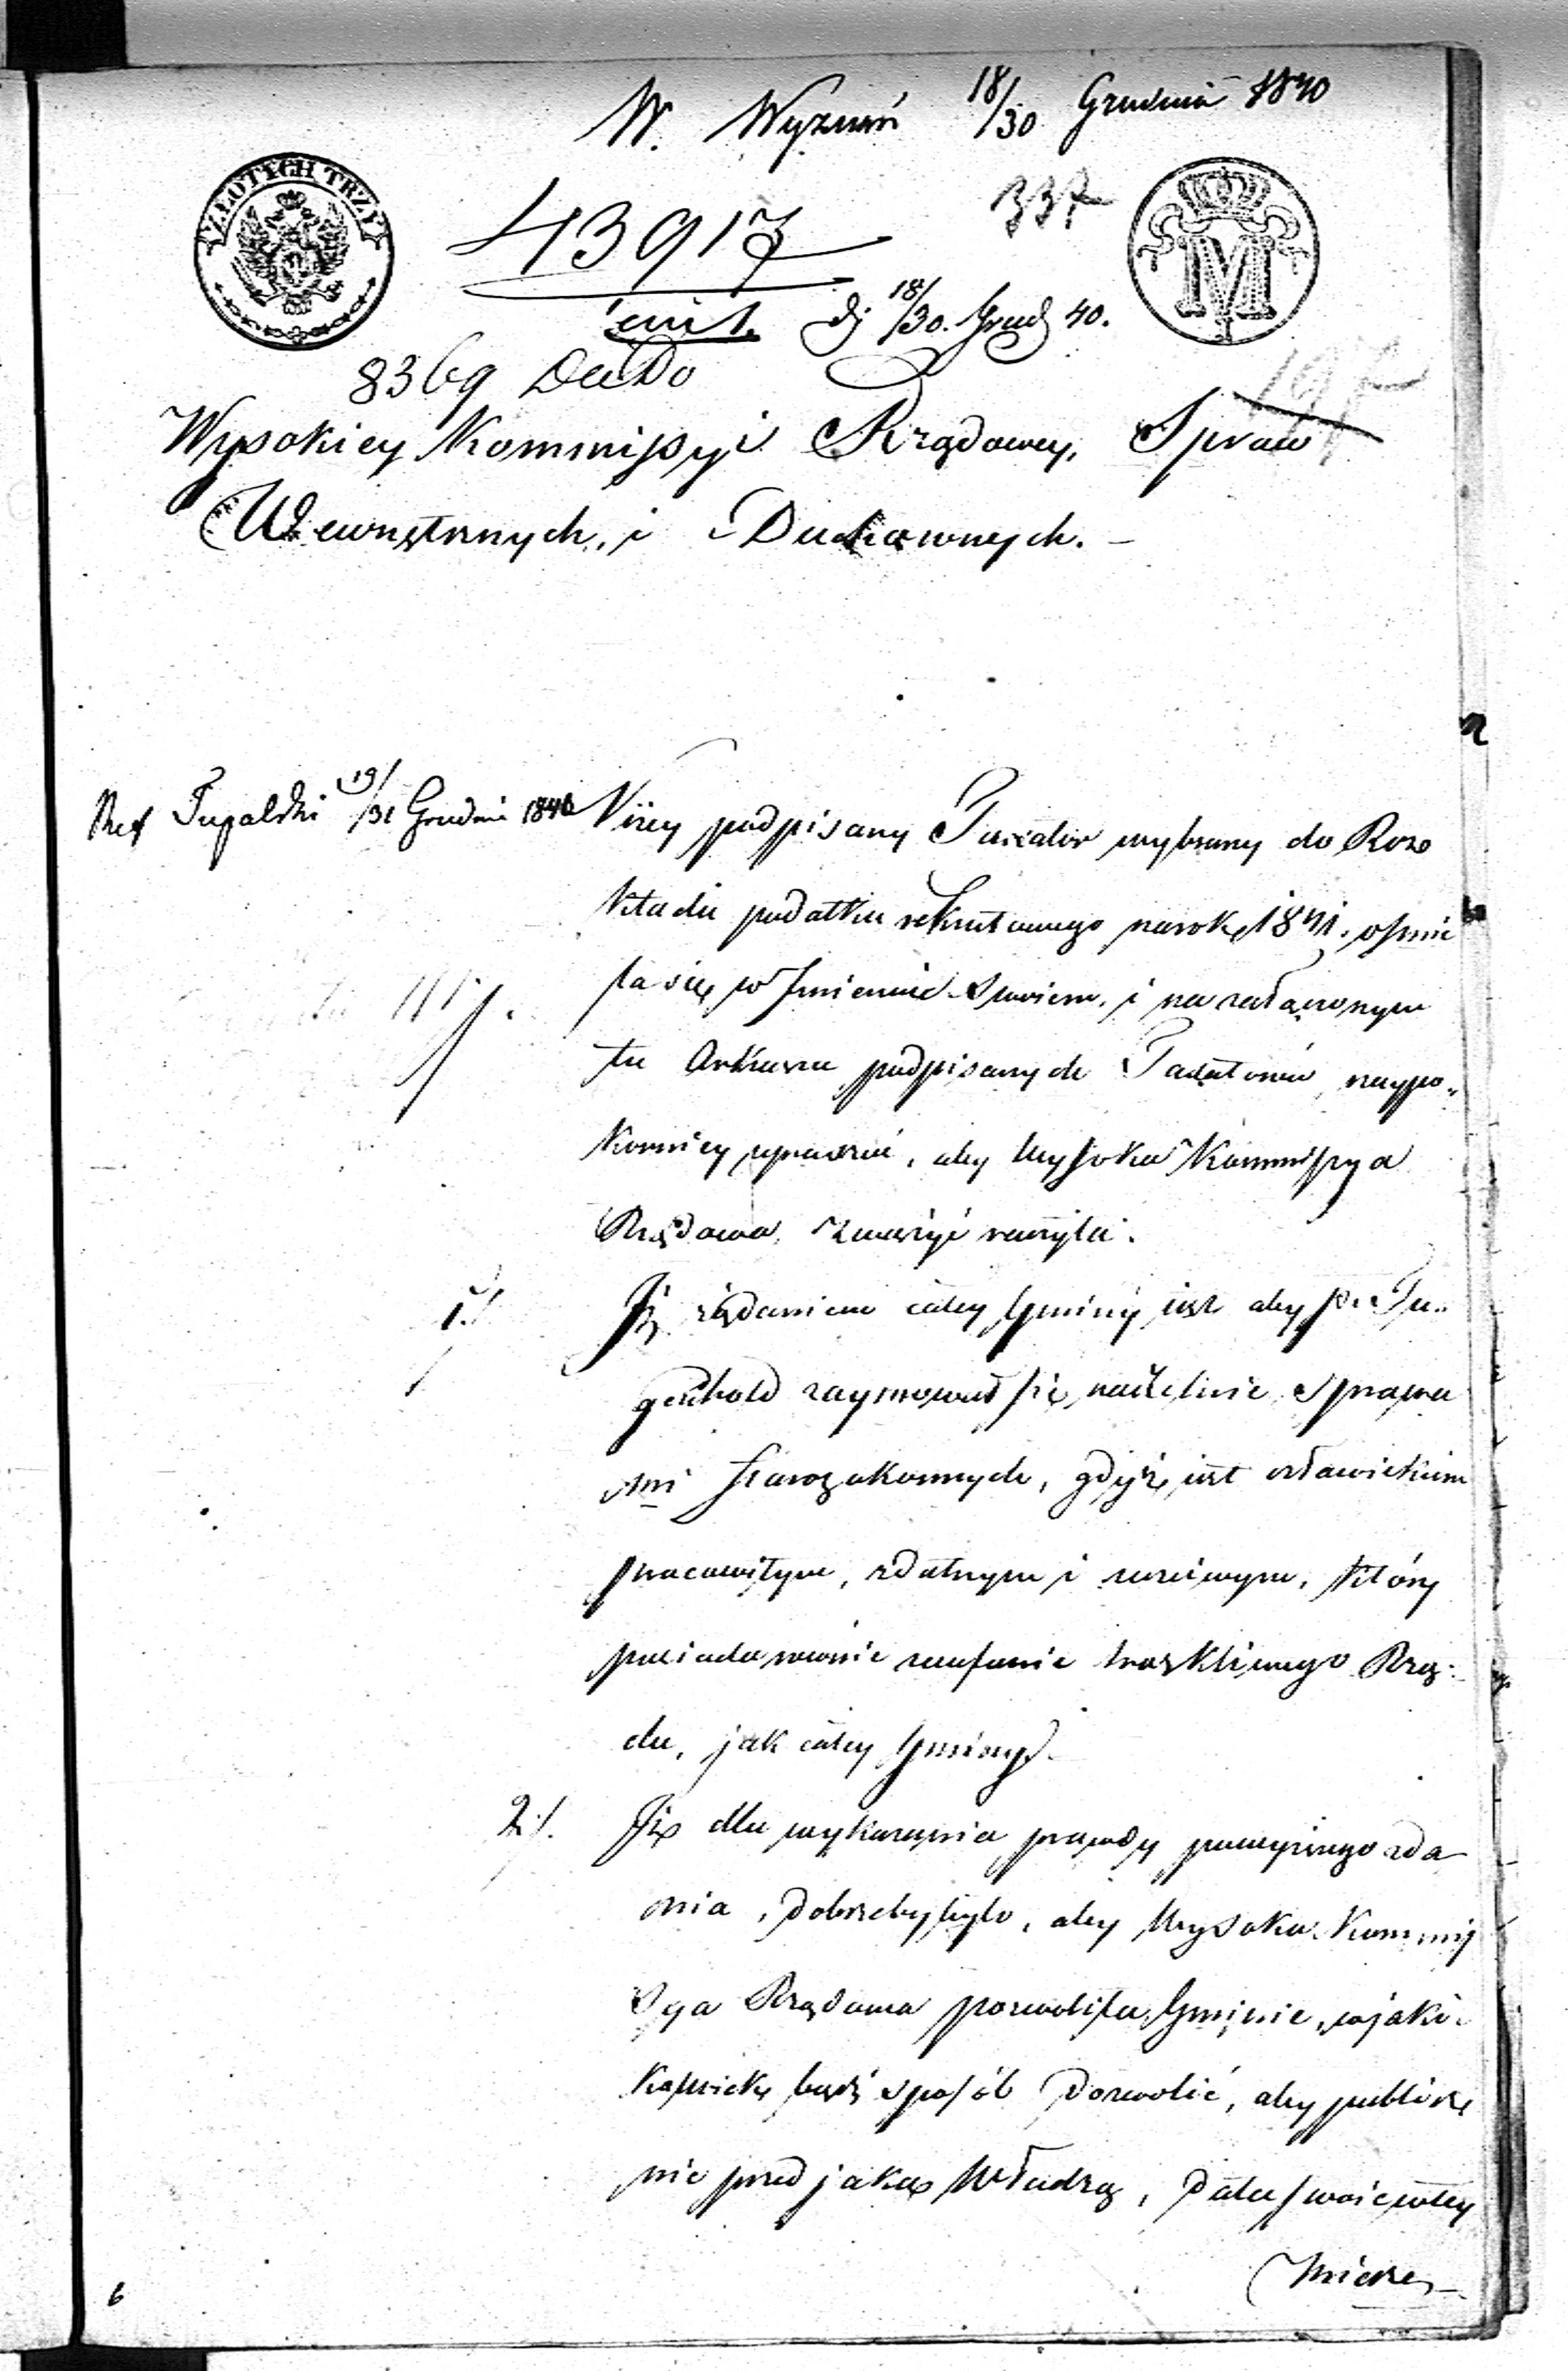 W. Wyznań 18/30 Grudnia 1840
ZŁOTYCH TRZY
43917
337
M
dj 18/30. Grud 40.
8369
197
Wysokiey Kommissyi Rządowey, Spraw
Wewnętrznych, i Duchownych. –
Ref Tupalski 19/31 Grudnia 1840
Niżey podpisany Taxator wybrany do Roz
kładu podatku rekrutowego na rok 1841. ośmie
la się w Imieniu Swoiem, i na załączonym
tu Arkuszu podpisanych Taxatorów, naypo„
korniey upraszać, aby Wysoka Kommissya
Rządowa, zważyć raczyła.
1./ Iż żądaniem całey Gminy iest aby Pn Tu„
gendhold zaymował się naczelnie sprawa
mi Starozakonnych, gdyż iest człowiekiem
pracowitym, zdatnym i uczciwym, który
posiada równie zaufanie troskliwego Rzą„
du, jak całey Gminy.
2./. Iż dla wykazania prawdy powyższego zda
nia, dobrzeby było, aby Wysoka Kommis
sya Rządowa pozwoliła Gminie, w jaki„
kolwiek bądź sposób dozwolić, aby publicz
nie przed jaką Władzą, dała swoie w tey
Mierze
6